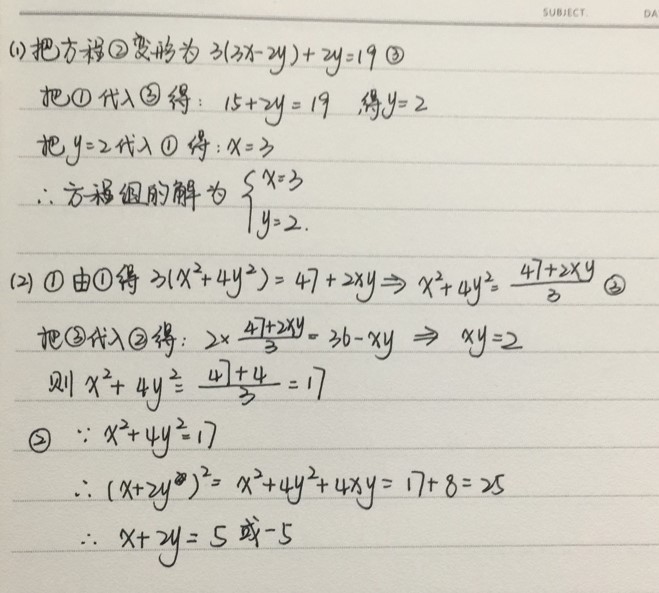 SUBJECT DA
(1) 把方程②变形为 3(3x-2y)+2y=19 ③
把①代入③得: 15+2y=19 得y=2
把y=2代入①得: x=3
∴方程组的解为 {x=3
y=2.
(2) ① 由①得 3(x²+4y²)=47+2xy⇒ x²+4y²=\frac{47+2xy}{3} ③
把③代入②得: 2×\frac{47+2xy}{3}=36-xy ⇒ xy=2
则 x²+4y²=\frac{47+4}{3}=17
② ∵ x²+4y²=17
∴ (x+2y)²= x²+4y²+4xy=17+8=25
∴ x+2y=5或-5